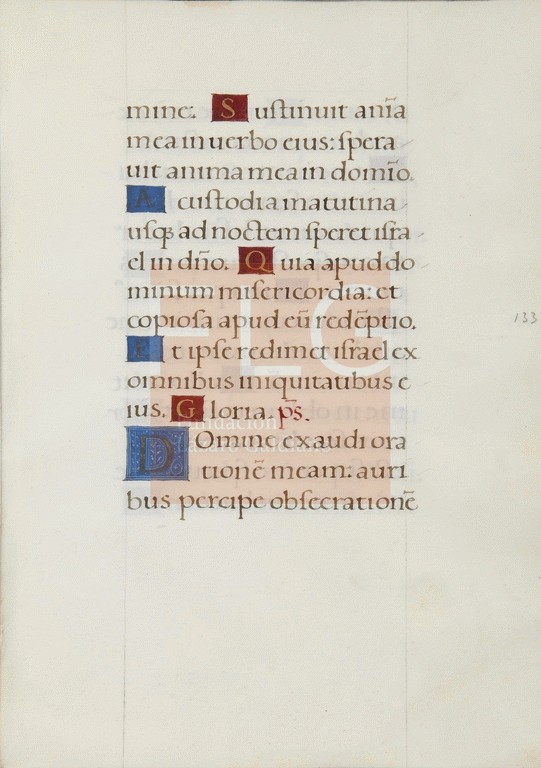 mine. Sustinuit anīa
mea in uerbo eius: spera
uit anima mea in domīo.
A custodia matutina
usqꝫ ad noctem speret isra
el in dn̄o. Quia apud do
minum misericordia: et
copiosa apud eū redēptio.
Et ipse redimet israel ex
omnibus iniquitatibus e
ius. Gloria. p̄s.
DOmine exaudi ora
tionē meam: auri
bus percipe obsecrationē
133
FLG
Fundación
Lázaro Galdiano